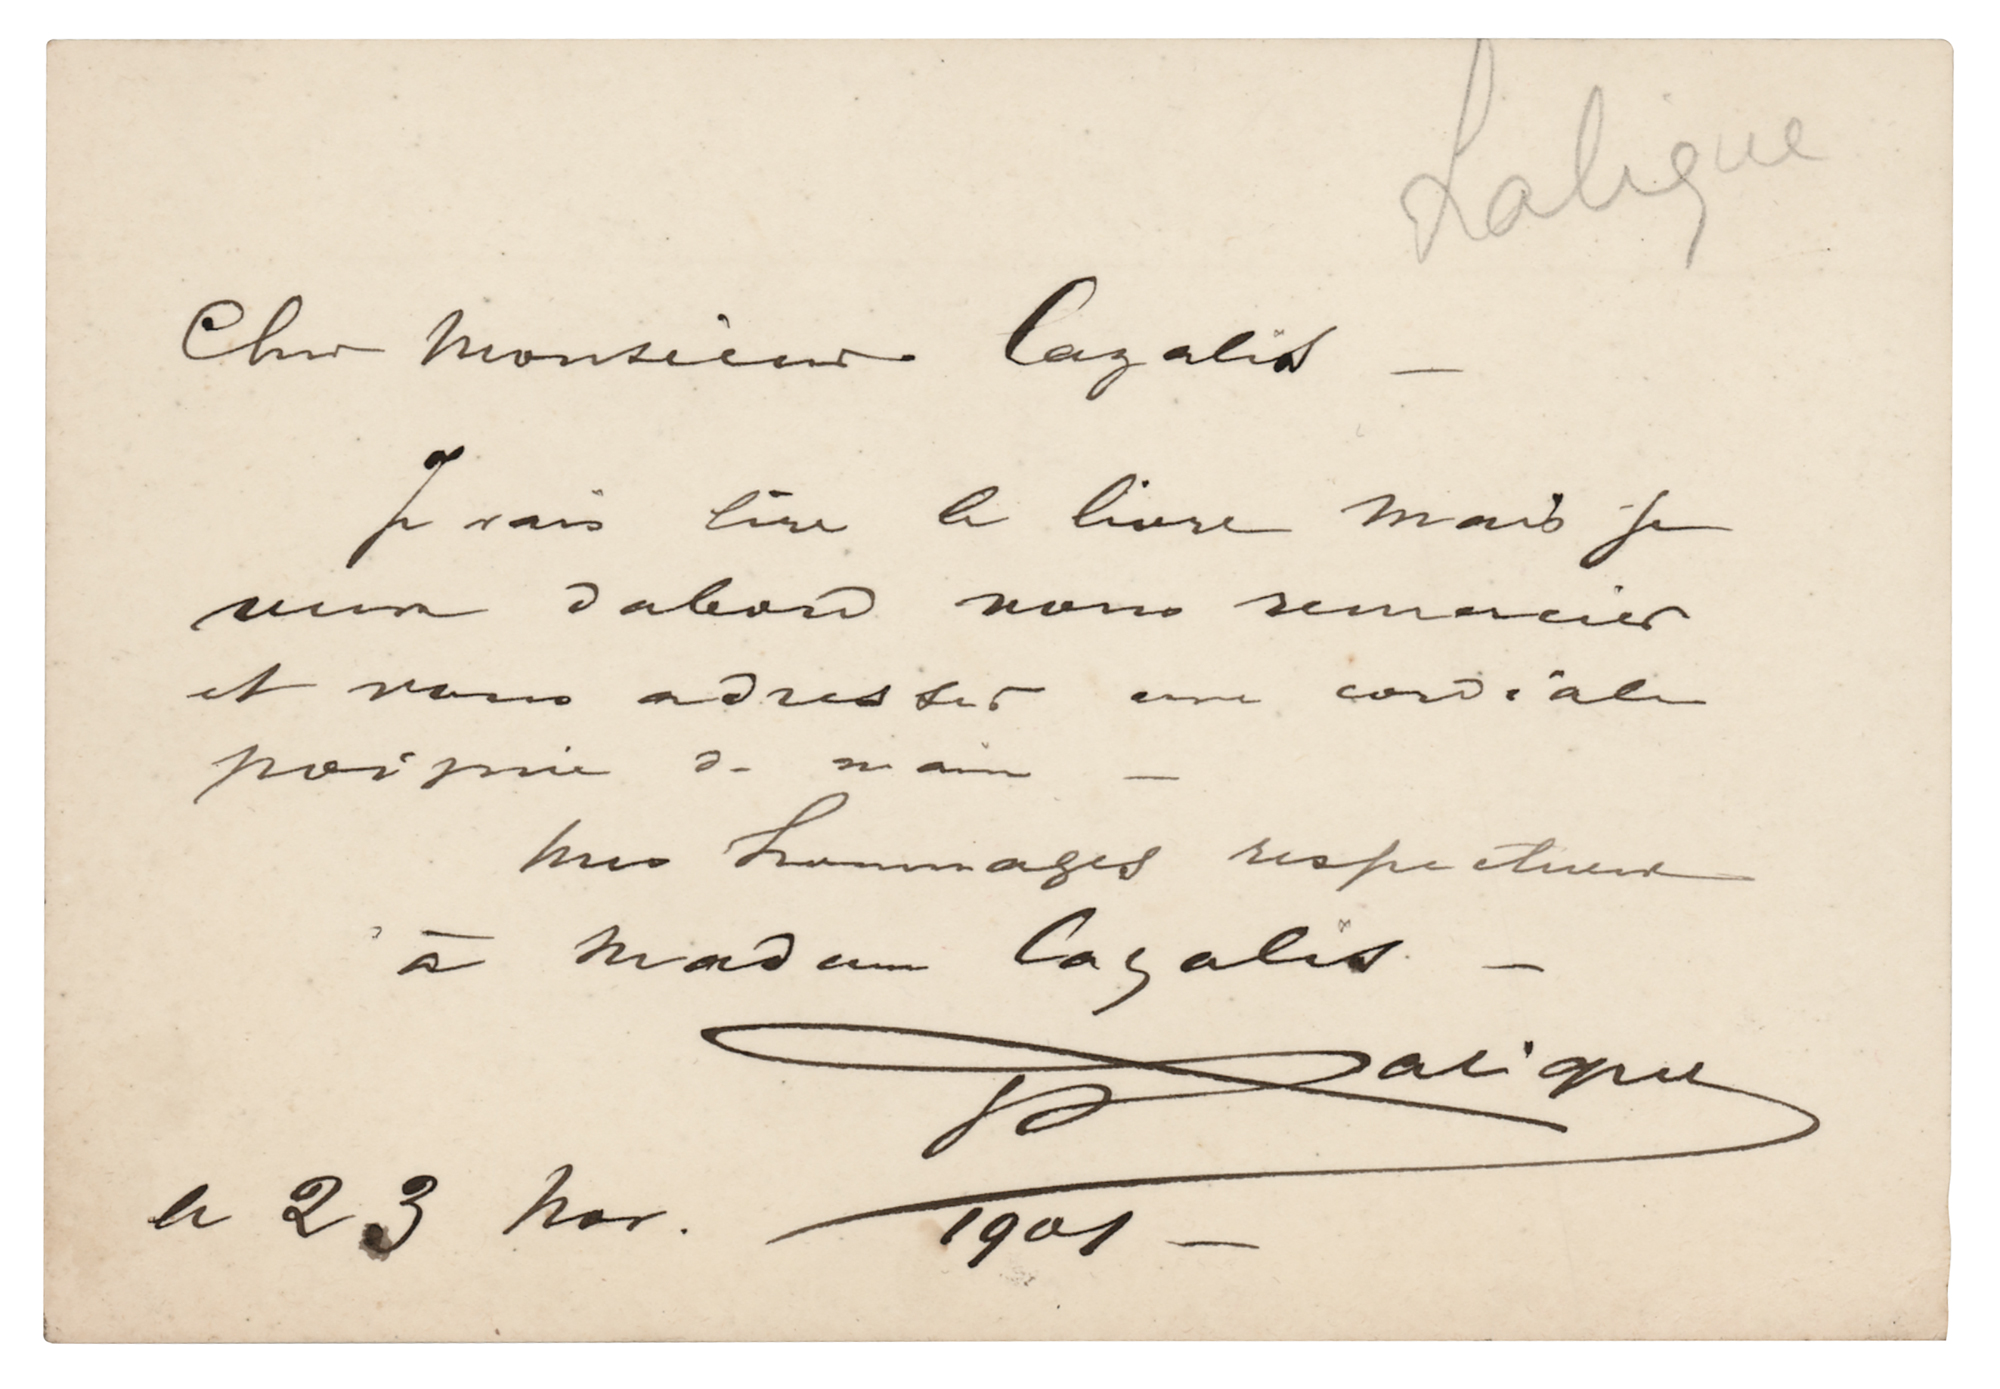 Lalique
Cher Monsieur Cazalis —
Je vais lire le livre mais je
veux d'abord vous remercier
et vous adresser une cordiale
poignée de main —
Mes hommages respectueux
à Madame Cazalis —
R Lalique
le 23 Nov. 1901 —